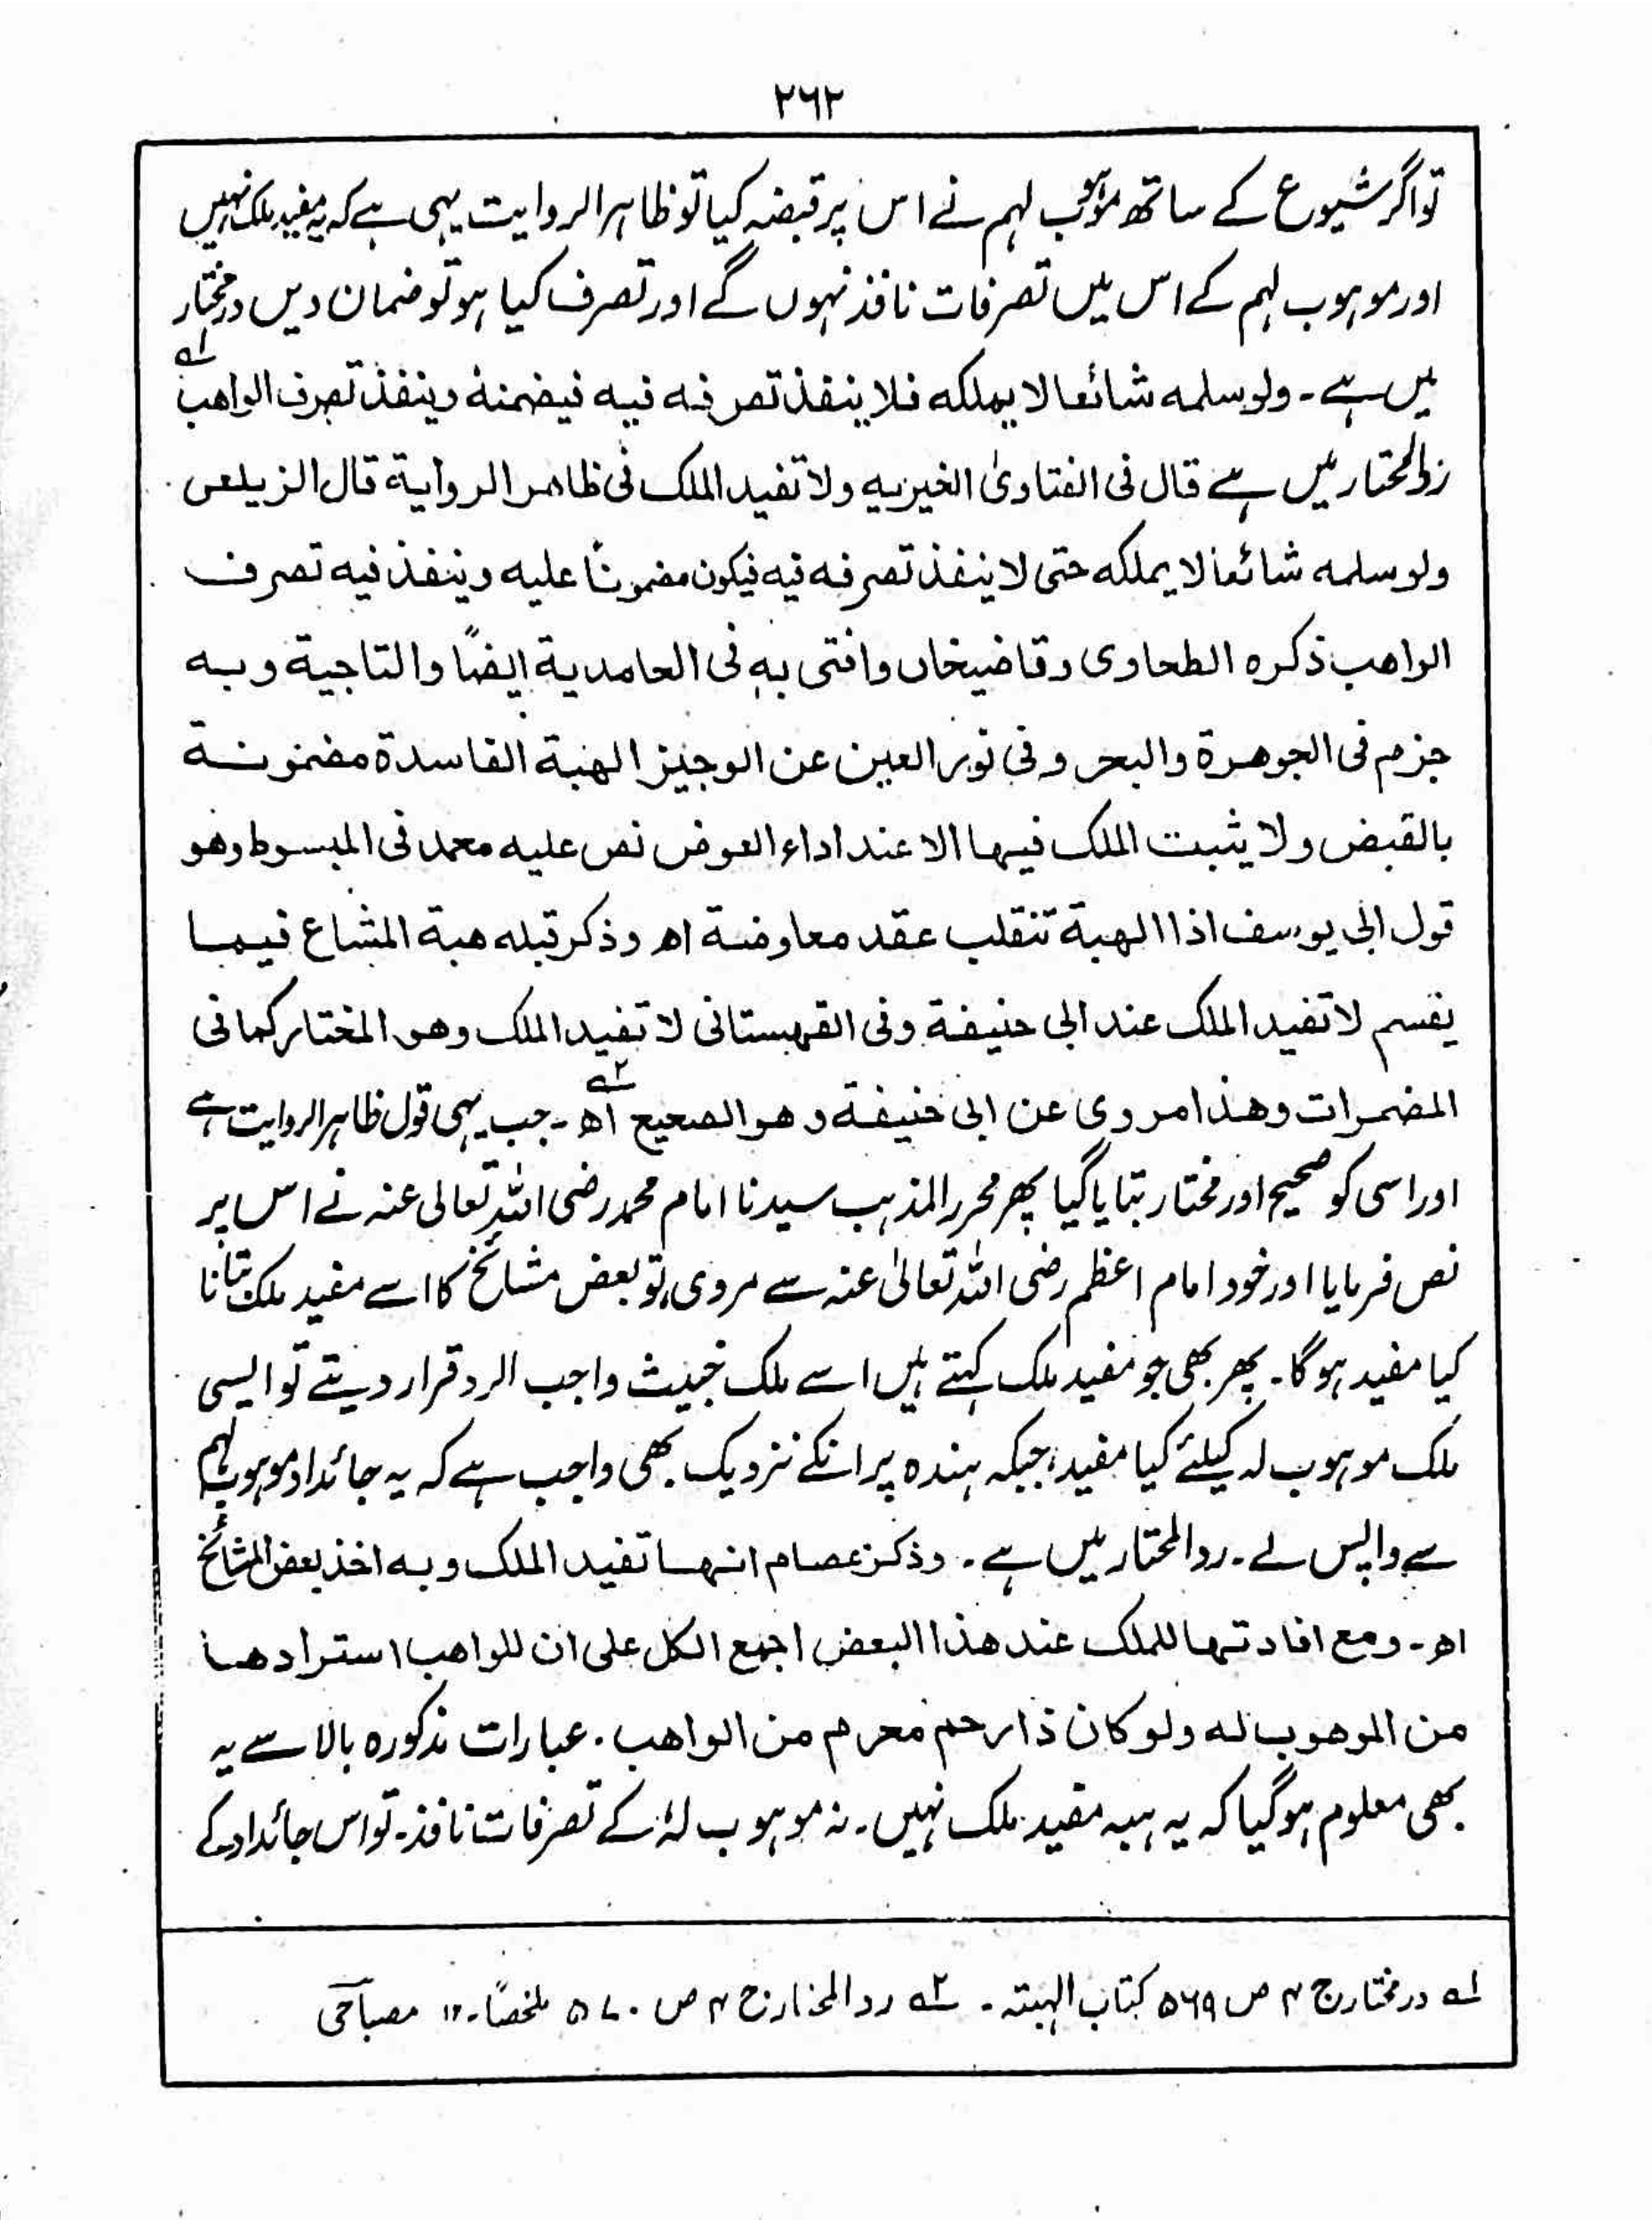 ۲۶۲
تو اگر شیوع کے ساتھ موہوب لہم نے اس پر قبضہ کیا تو ظاہر الروایت یہی ہے کہ یہ مفید ملک نہیں
اور موہوب لہم کے اس میں تصرفات نافذ نہوں گے اور تصرف کیا ہو تو ضمان دیں درمختار
میں ہے ۔ ولو سلمه شائعا لا يملكه فلا ينفذ تصرفه فيه فيضمنه وينفذ تصرف الواهب ؎۱
ردالمحتار میں ہے قال فی الفتاویٰ الخیریه ولا تفید الملک فی ظاهر الروایة قال الزیلعی
ولو سلمه شائعا لا یملکه حتی لا ینفذ تصرفه فیه فیکون مضمونًا علیه وینفذ فیه تصرف
الواهب ذکره الطحاوی وقاضیخان وافتی به فی الحامدیة ایضًا والتاجیة وبه
جزم فی الجوهرة والبحر وفی نور العین عن الوجیز الهبة الفاسدة مضمونة
بالقبض ولا یثبت الملک فیها الا عند اداء العوض نص علیه محمد فی المبسوط وهو
قول ابی یوسف اذا الهبة تنقلب عقد معاوضة اھ وذکر قبله هبة المشاع فیما
یقسم لا تفید الملک عند ابی حنیفة وفی القهستانی لا تفید الملک وهو المختار کما فی
المضمرات وهذا مروی عن ابی حنیفة وهو الصحیح اھ ؎۲ ۔ جب یہی قول ظاہر الروایت ہے
اور اسی کو صحیح اور مختار بتایا گیا پھر محرر المذہب سیدنا امام محمد رضی اللہ تعالی عنہ نے اس پر
نص فرمایا اور خود امام اعظم رضی اللہ تعالیٰ عنہ سے مروی، تو بعض مشائخ کا اسے مفید ملک بتانا
کیا مفید ہوگا ۔ پھر بھی جو مفید ملک کہتے ہیں اسے ملک خبیث واجب الرد قرار دیتے تو ایسی
ملک موہوب لہ کیلئے کیا مفید، جبکہ ہندہ پر انکے نزدیک بھی واجب ہے کہ یہ جائداد موہوب لہم
سے واپس لے ۔ ردالمحتار میں ہے ۔ وذکر عصام انها تفید الملک وبه اخذ بعض المشائخ
اھ ۔ ومع افادتها للملک عند هذا البعض اجمع الکل علی ان للواهب استردادها
من الموهوب له ولو کان ذا رحم محرم من الواهب ۔ عبارات مذکورہ بالا سے یہ
بھی معلوم ہوگیا کہ یہ ہبہ مفید ملک نہیں ۔ نہ موہوب لہٗ کے تصرفات نافذ ۔ تو اس جائداد کے
؎۱ درمختار ج ۴ ص ۵۶۹ کتاب الہبتہ ۔ ؎۲ ردالمختار ج ۴ ص ۵۷۰ ملخصًا ۔ ۱۲ مصباحی